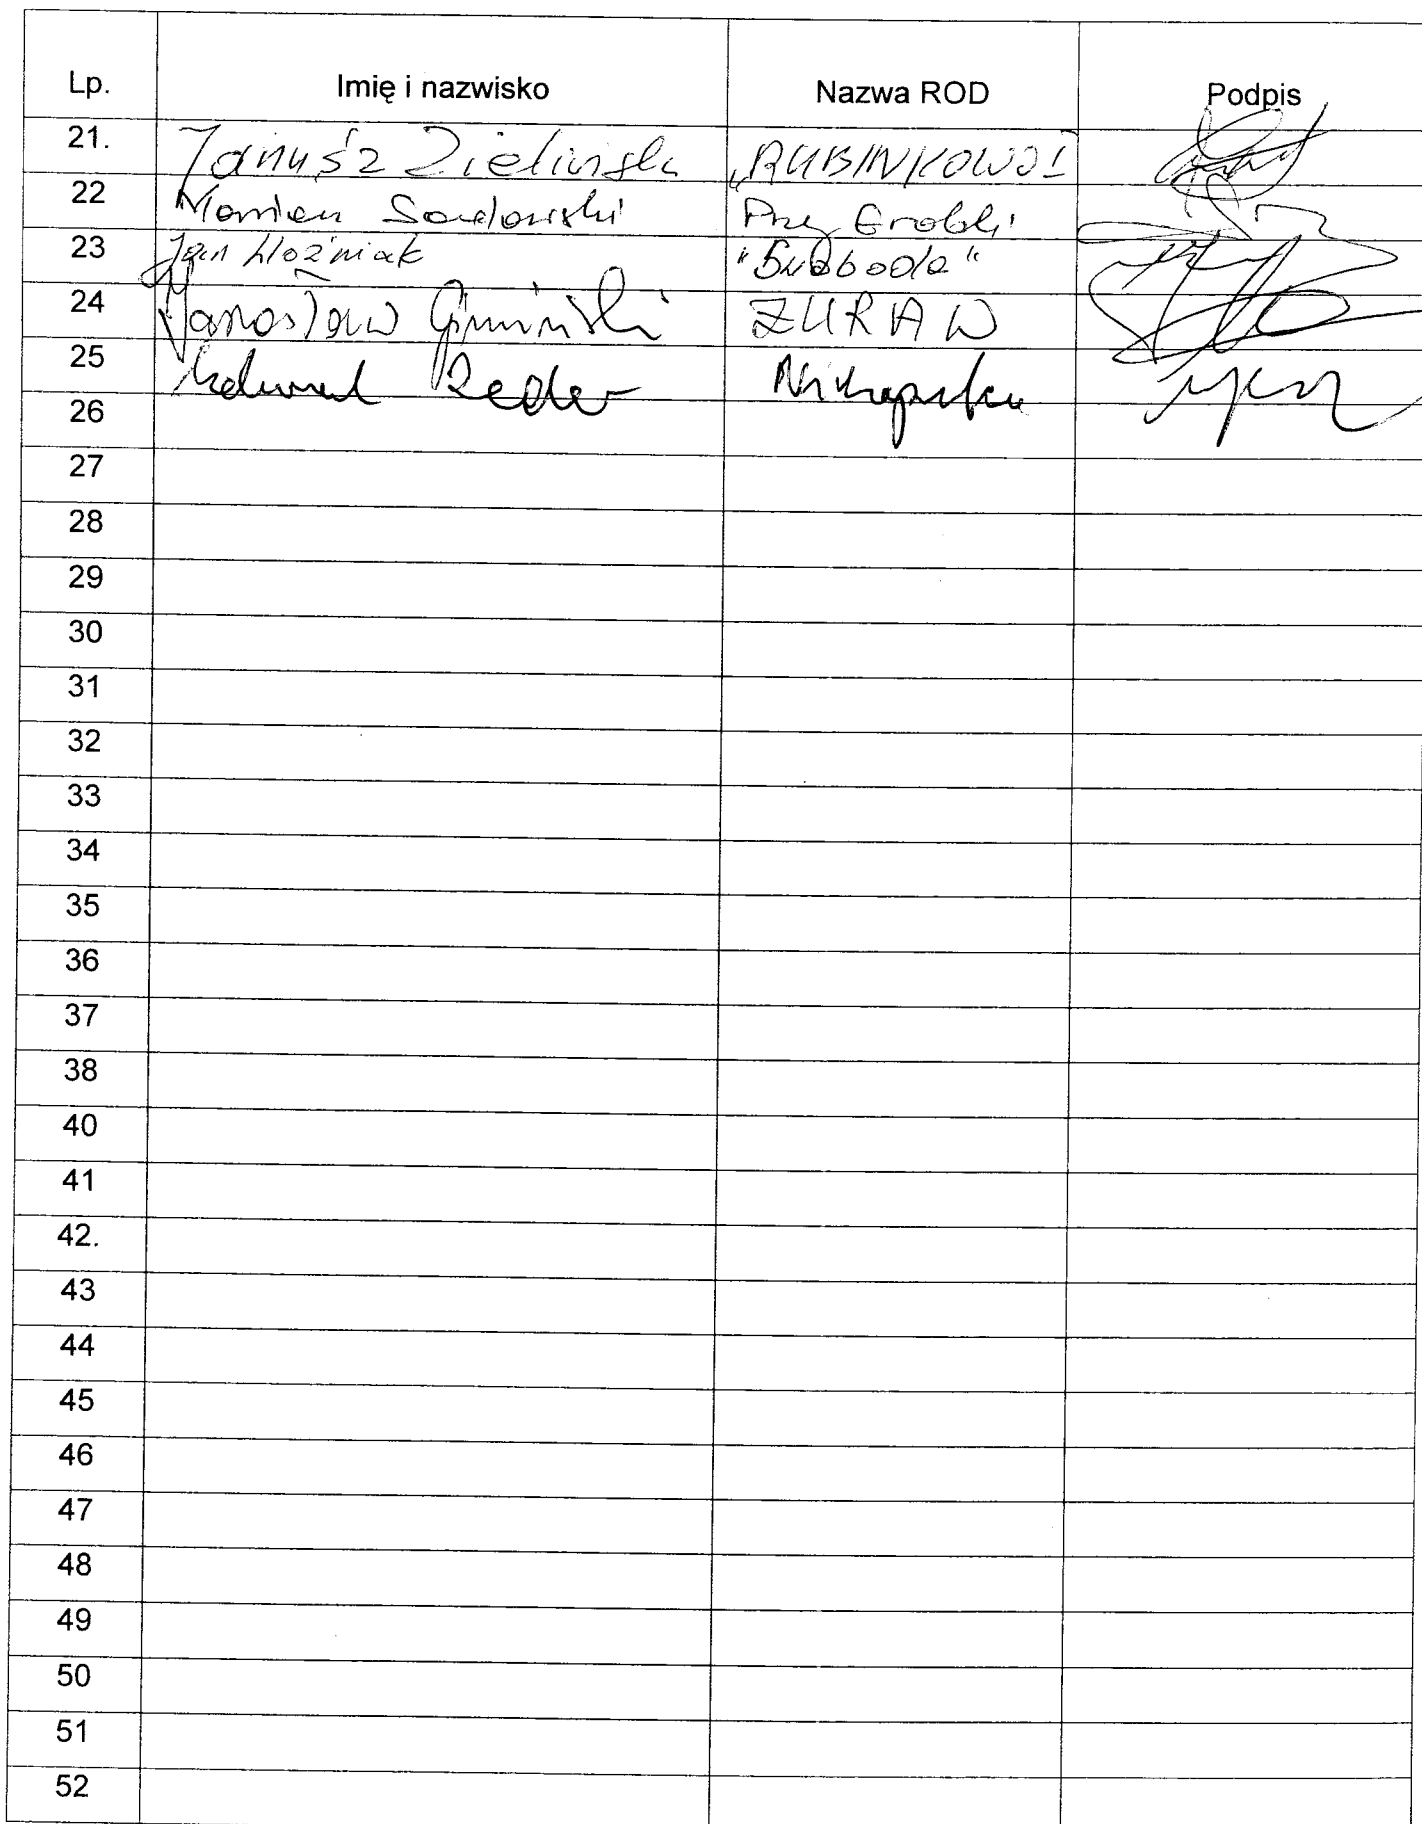 Lp. Imię i nazwisko Nazwa ROD Podpis
21. Janusz Zieliński „RUBINKOWO I
22 Marian Sadowski Przy Grobli
23 Jan Woźniak "Swoboda"
24 Jarosław Gimiński ŻURAW
25 Reder
26
27
28
29
30
31
32
33
34
35
36
37
38
40
41
42.
43
44
45
46
47
48
49
50
51
52